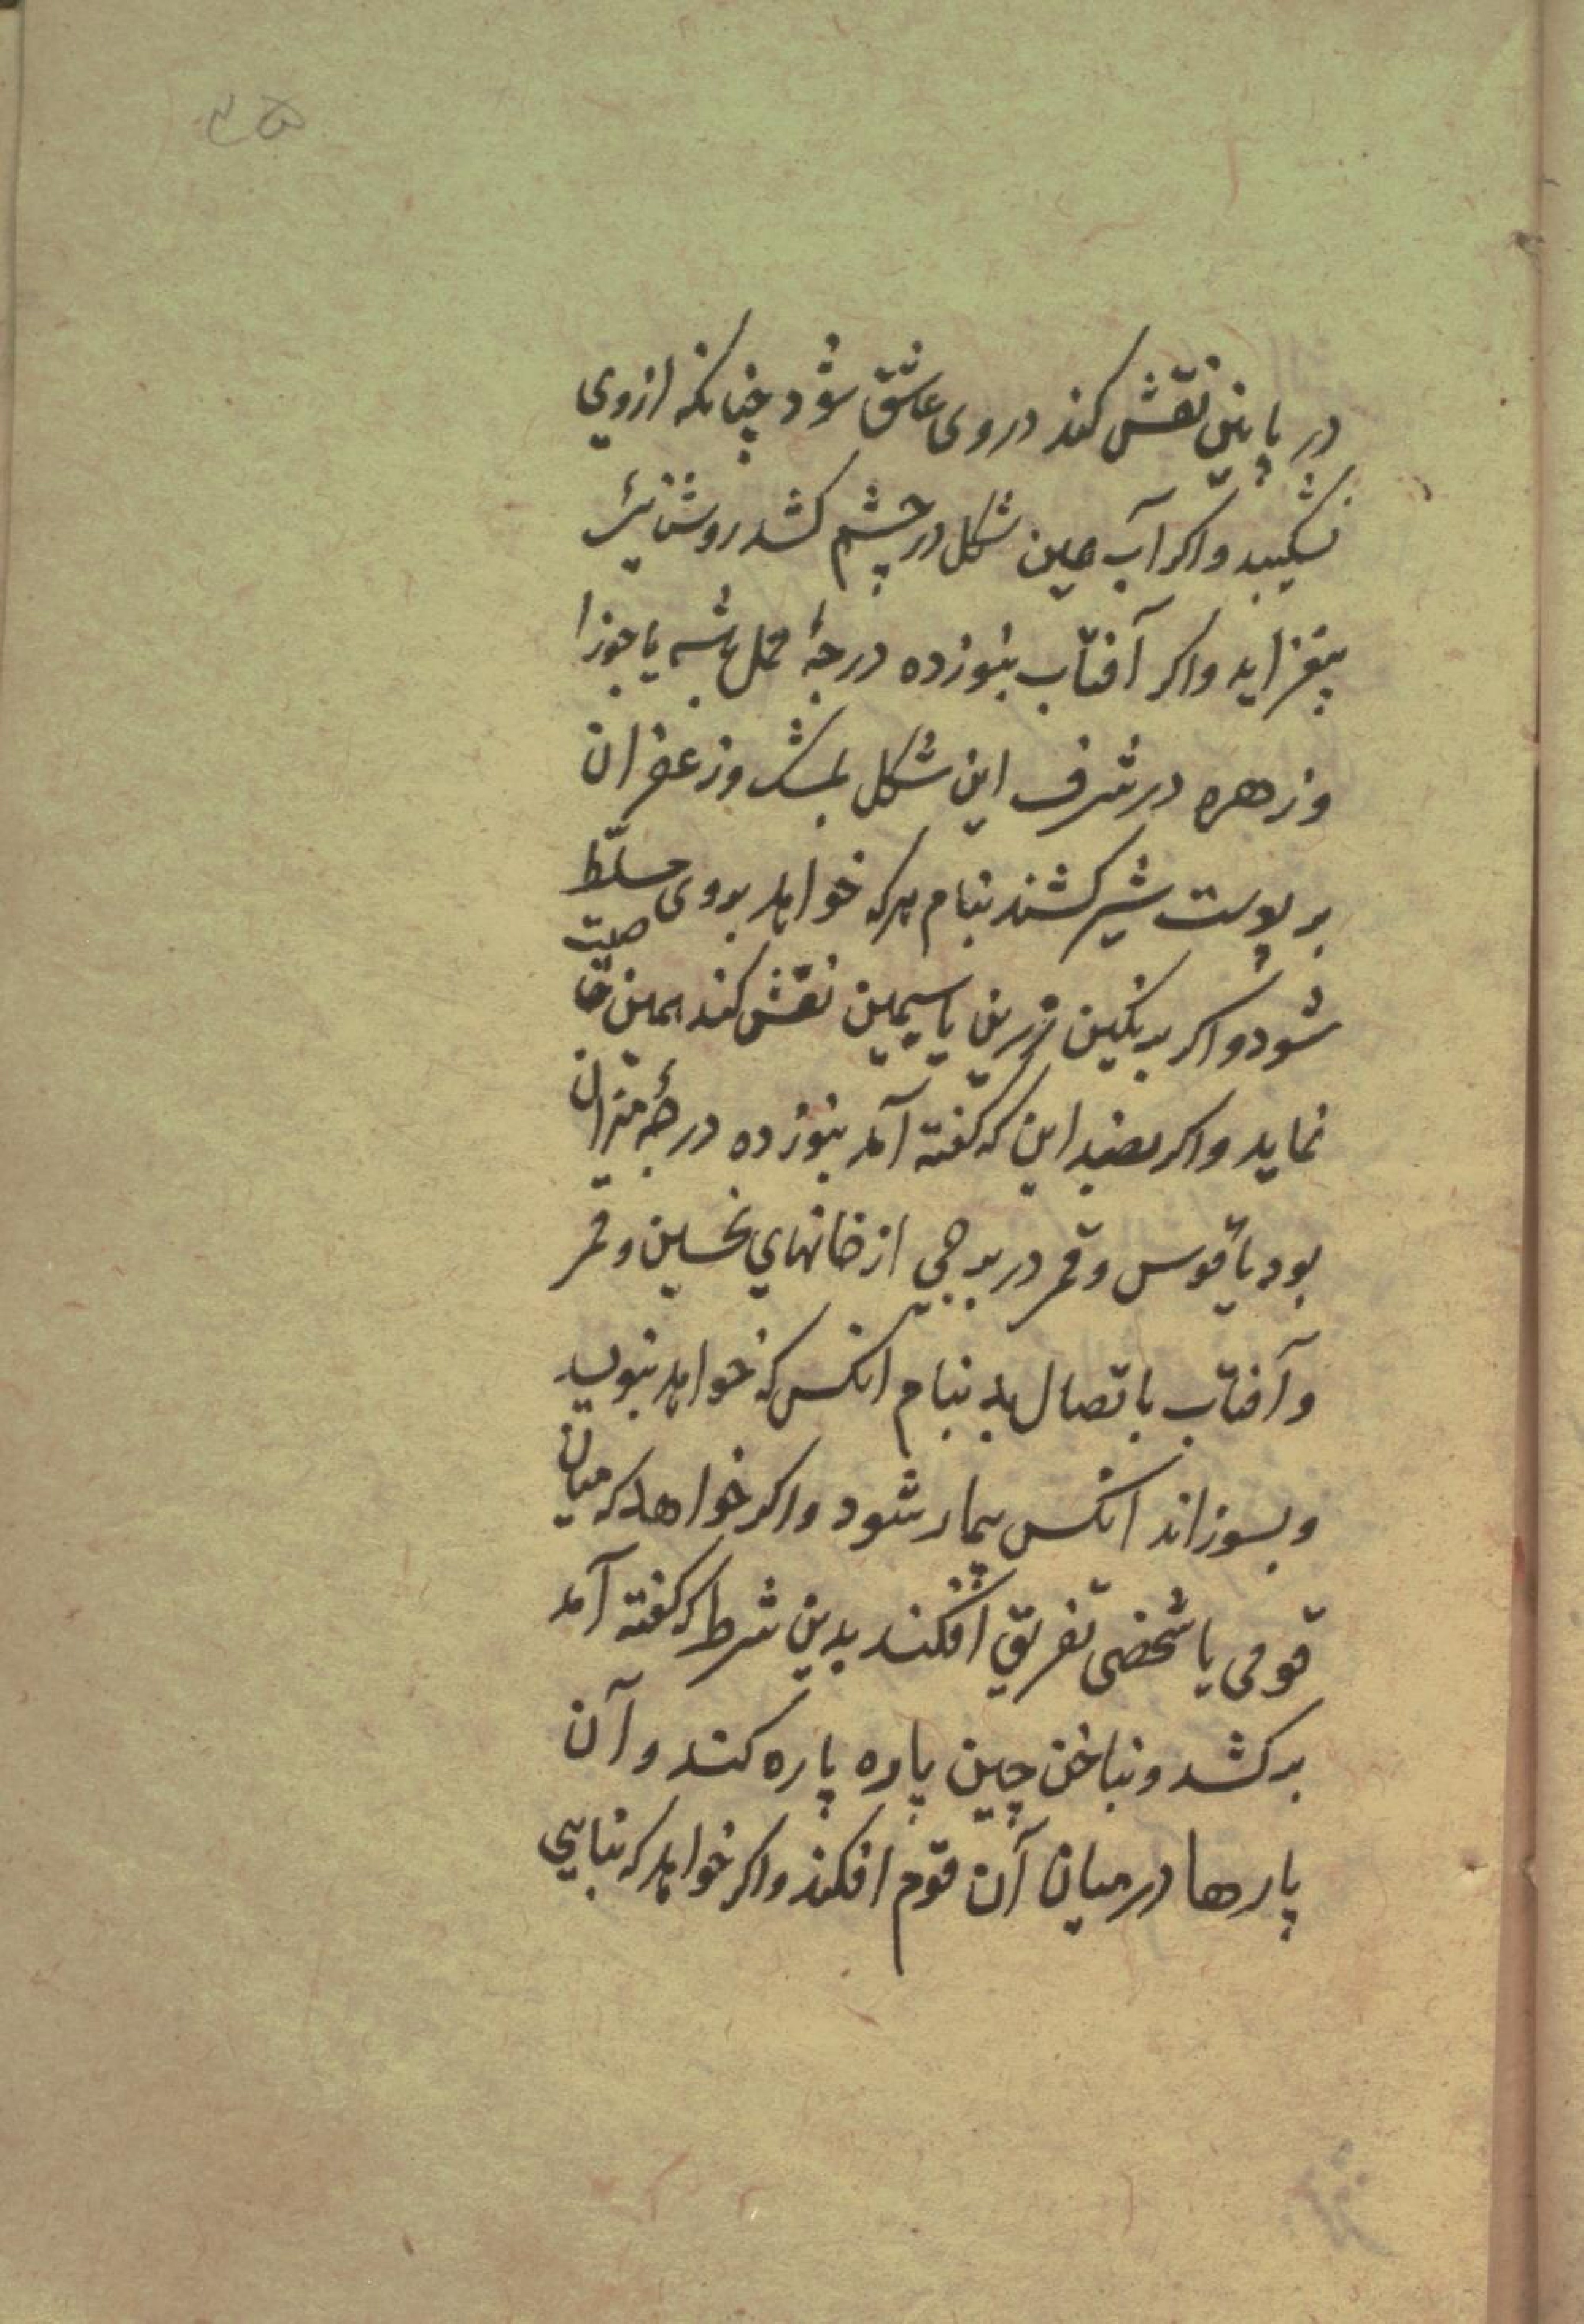 ۳۵
در پایین نقش کند در وی عاشق شود چنانکه از وی
نشکیبد واکر آب عین شکل در چشم کشد روشنائی
بیفزاید واکر آفتاب بنوزده درجهٔ حمل باشد یا جوزا
وزهره در شرف این شکل بمشک وزعفران
بر پوست شیر کشند بنام هرکه خواهد بروی مسلط
شود واکر بر نکین زرین یا سیمین نقش کند همین خاصیت
نماید واکر بضد این که کفته آمد بنوزده درجهٔ میزان
بود یا قوس وقمر در برجی از خانهای نحسین وقمر
وآفتاب باتصال بد بنام انکس که خواهد بنویسد
وبسوزاند انکس بیمار شود واکر خواهد که میان
قومی یا شخصی تفریق افکند بدین شرط که کفته آمد
برکشد وبناخن چین پاره پاره کند وآن
پارها در میان آن قوم افکند واکر خواهد که